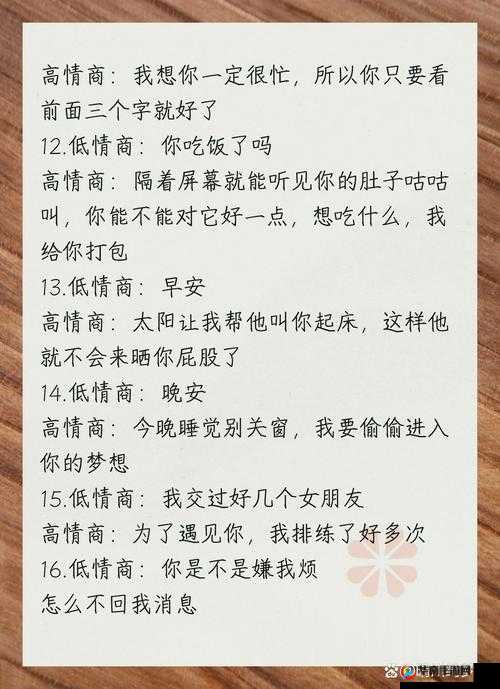 高情商：我想你一定很忙，所以你只要看
前面三个字就好了
12.低情商：你吃饭了吗
高情商：隔着屏幕就能听见你的肚子咕咕
叫，你能不能对它好一点，想吃什么，我
给你打包
13.低情商：早安
高情商：太阳让我帮他叫你起床，这样他
就不会来晒你屁股了
14.低情商：晚安
高情商：今晚睡觉别关窗，我要偷偷进入
你的梦想
15.低情商：我交过好几个女朋友
高情商：为了遇见你，我排练了好多次
16.低情商：你是不是嫌我烦
怎么不回我消息